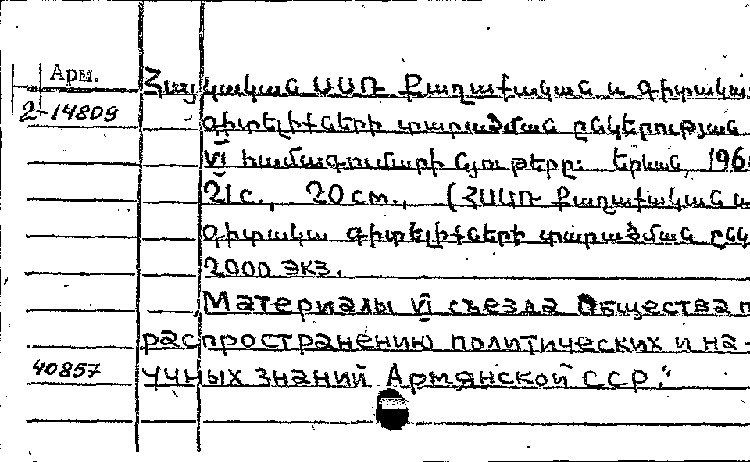 Арм.
Հայկական ՍՍՌ Քաղաքական և գիտակա
2-14809
գիտելիքների տարածման ընկերության
VI համագումարի նյութերը: Երևան, 196
21 с., 20 см., (ՀՍՍՌ Քաղաքական և
գիտակա գիտելիքների տարածման ընկ
2000 экз.
Материалы VI съезда Общества п
распространению политических и на-
40857
учных знаний Армянской ССР."